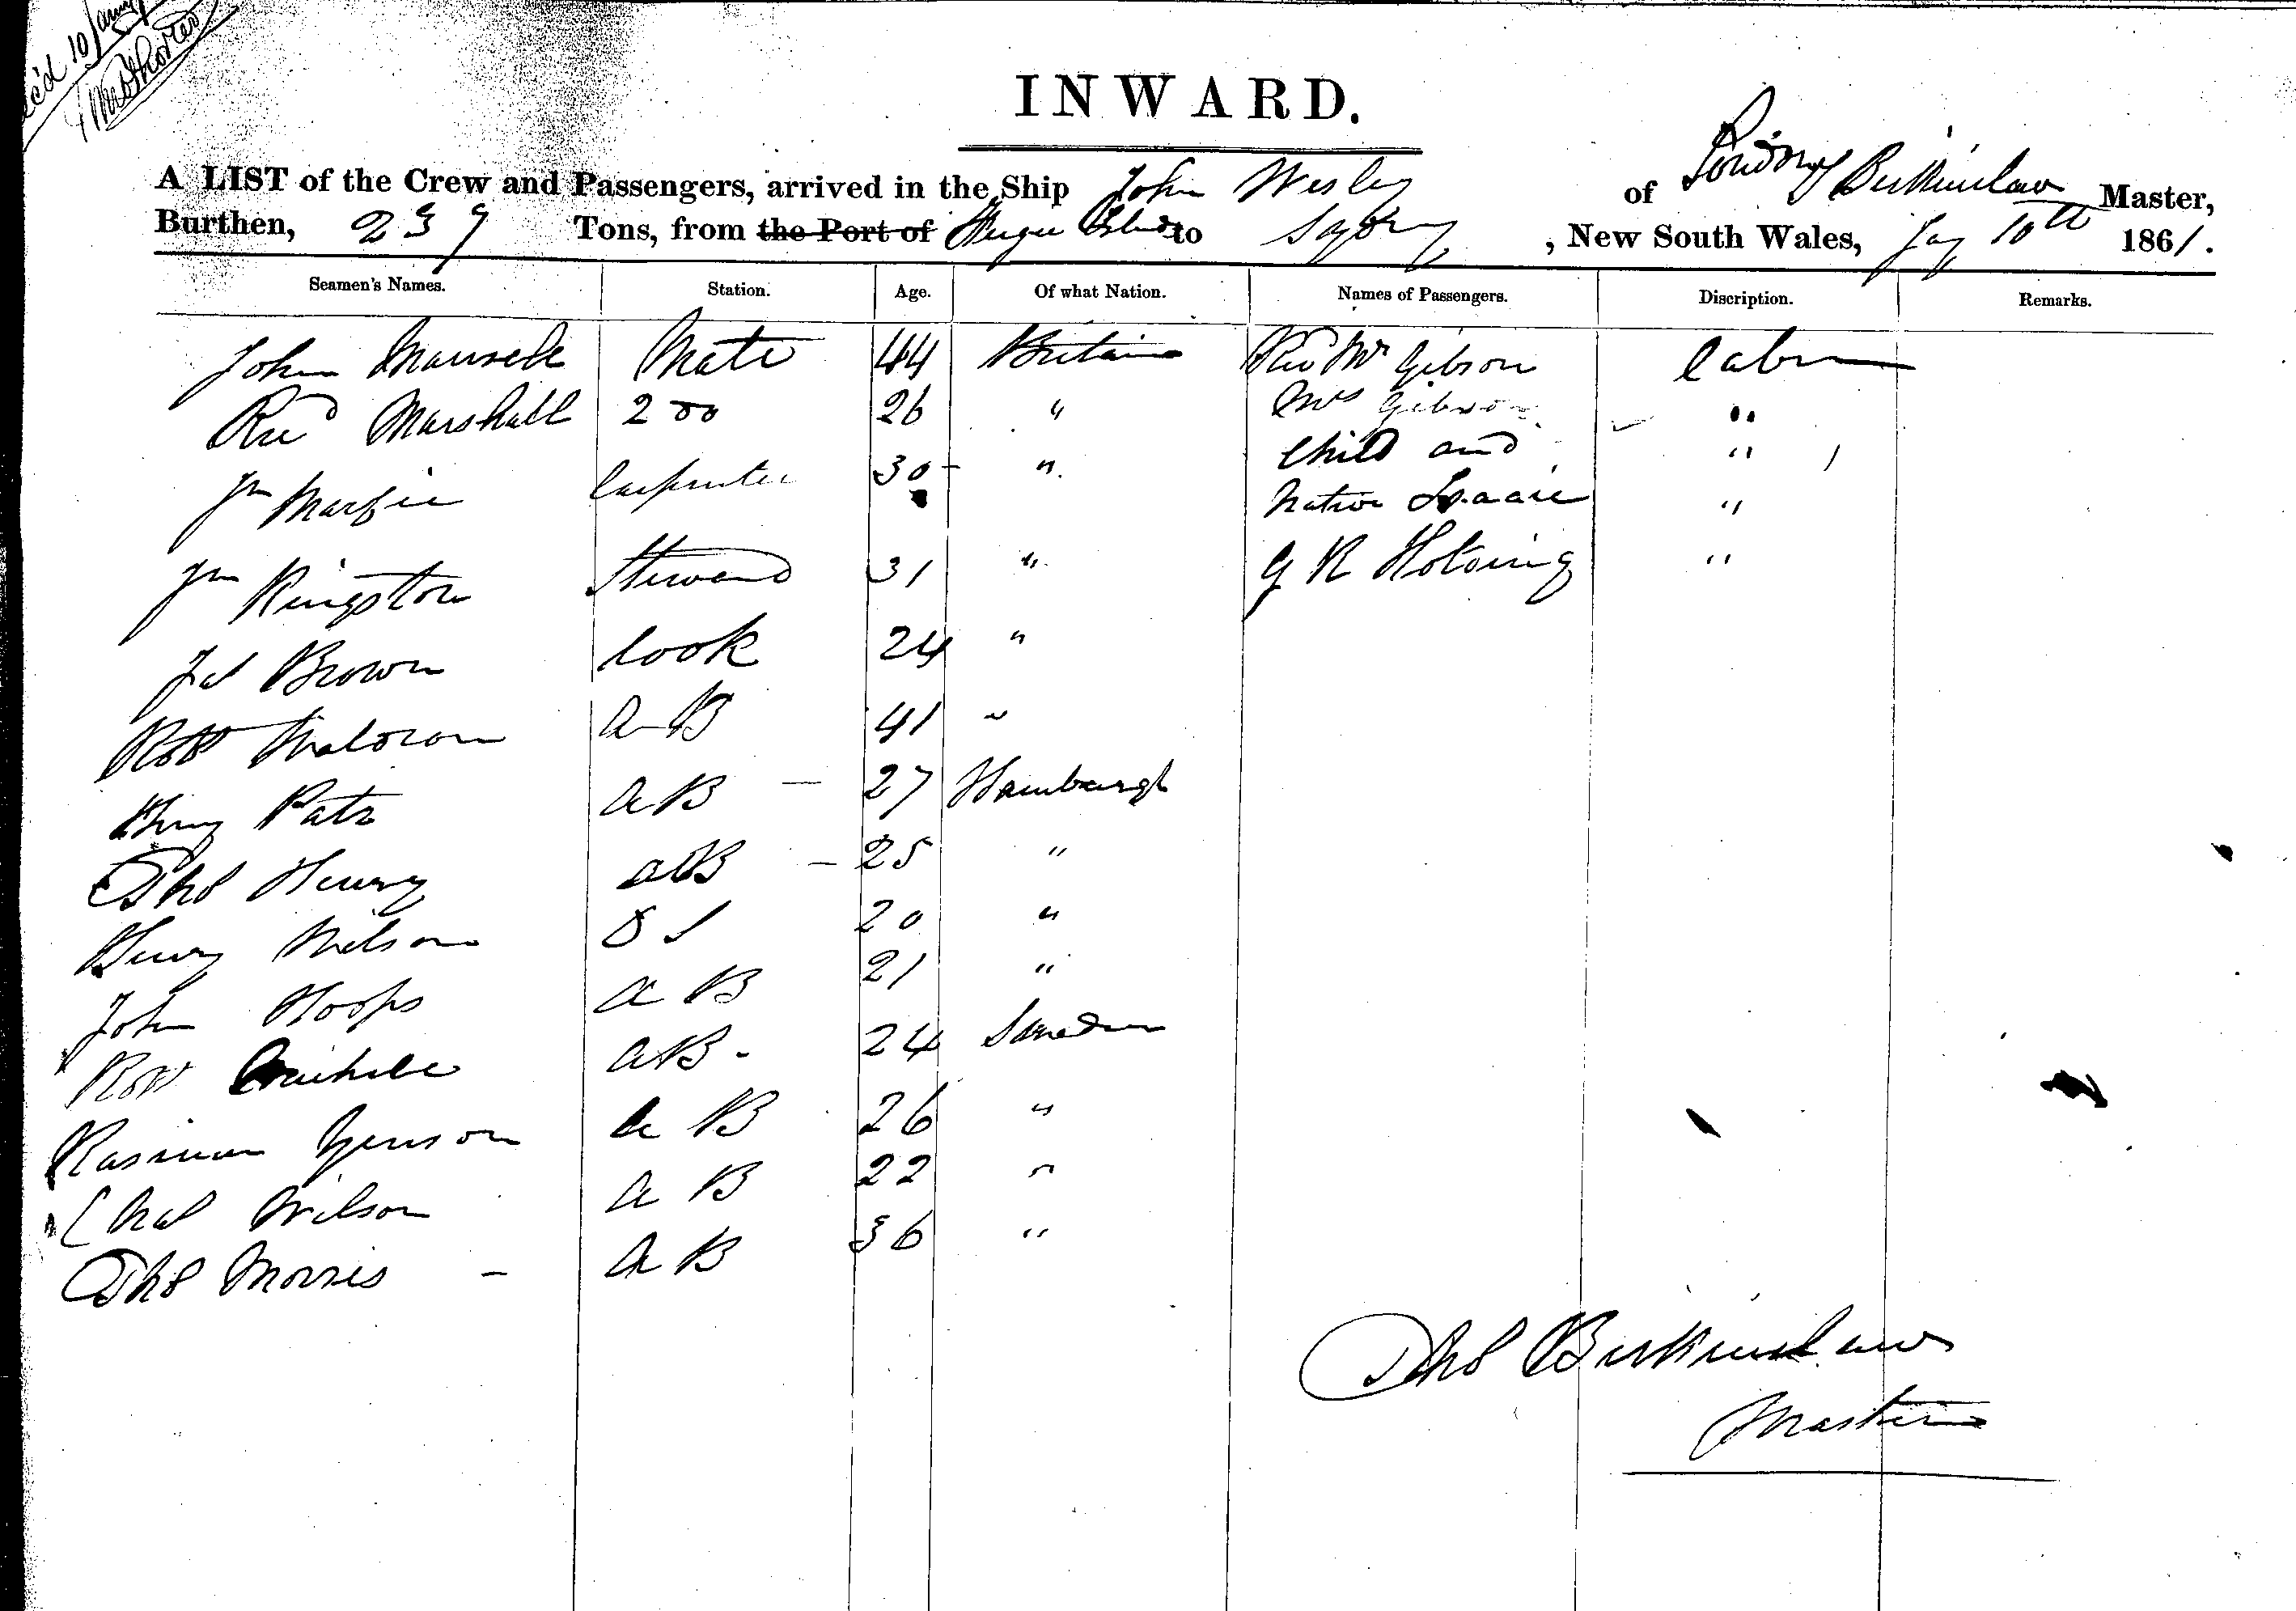 INWARD.
A LIST of the Crew and Passengers, arrived in the Ship John Wesley of London Birkinshaw Master,
Burthen, 239 Tons, from the Port of to Sydney, New South Wales, Jay 10th 1861.
Seamen's Names. Station. Age. Of what Nation. Names of Passengers. Discription. Remarks.
John Mansell Mate 44 Britain Revd Mr Gibson Cabin
Marshall 2nd 26 " Mrs Gibson "
Carpenter 30 " Child and "
Native Isaac "
Jn Kingston Steward 31 " G R "
Jas Brown Cook 24 "
Robt A B 41 "
Henry Patz A B 27 Hamburgh
Thos Henry A B 25 "
Henry Nelson O S 20 "
John Hoops A B 21 "
Robt A B 24 Sweden
Yenson A B 26 "
Chas Wilson A B 22 "
Thos Morris A B 36 "
Thos Birkinshaw
Master